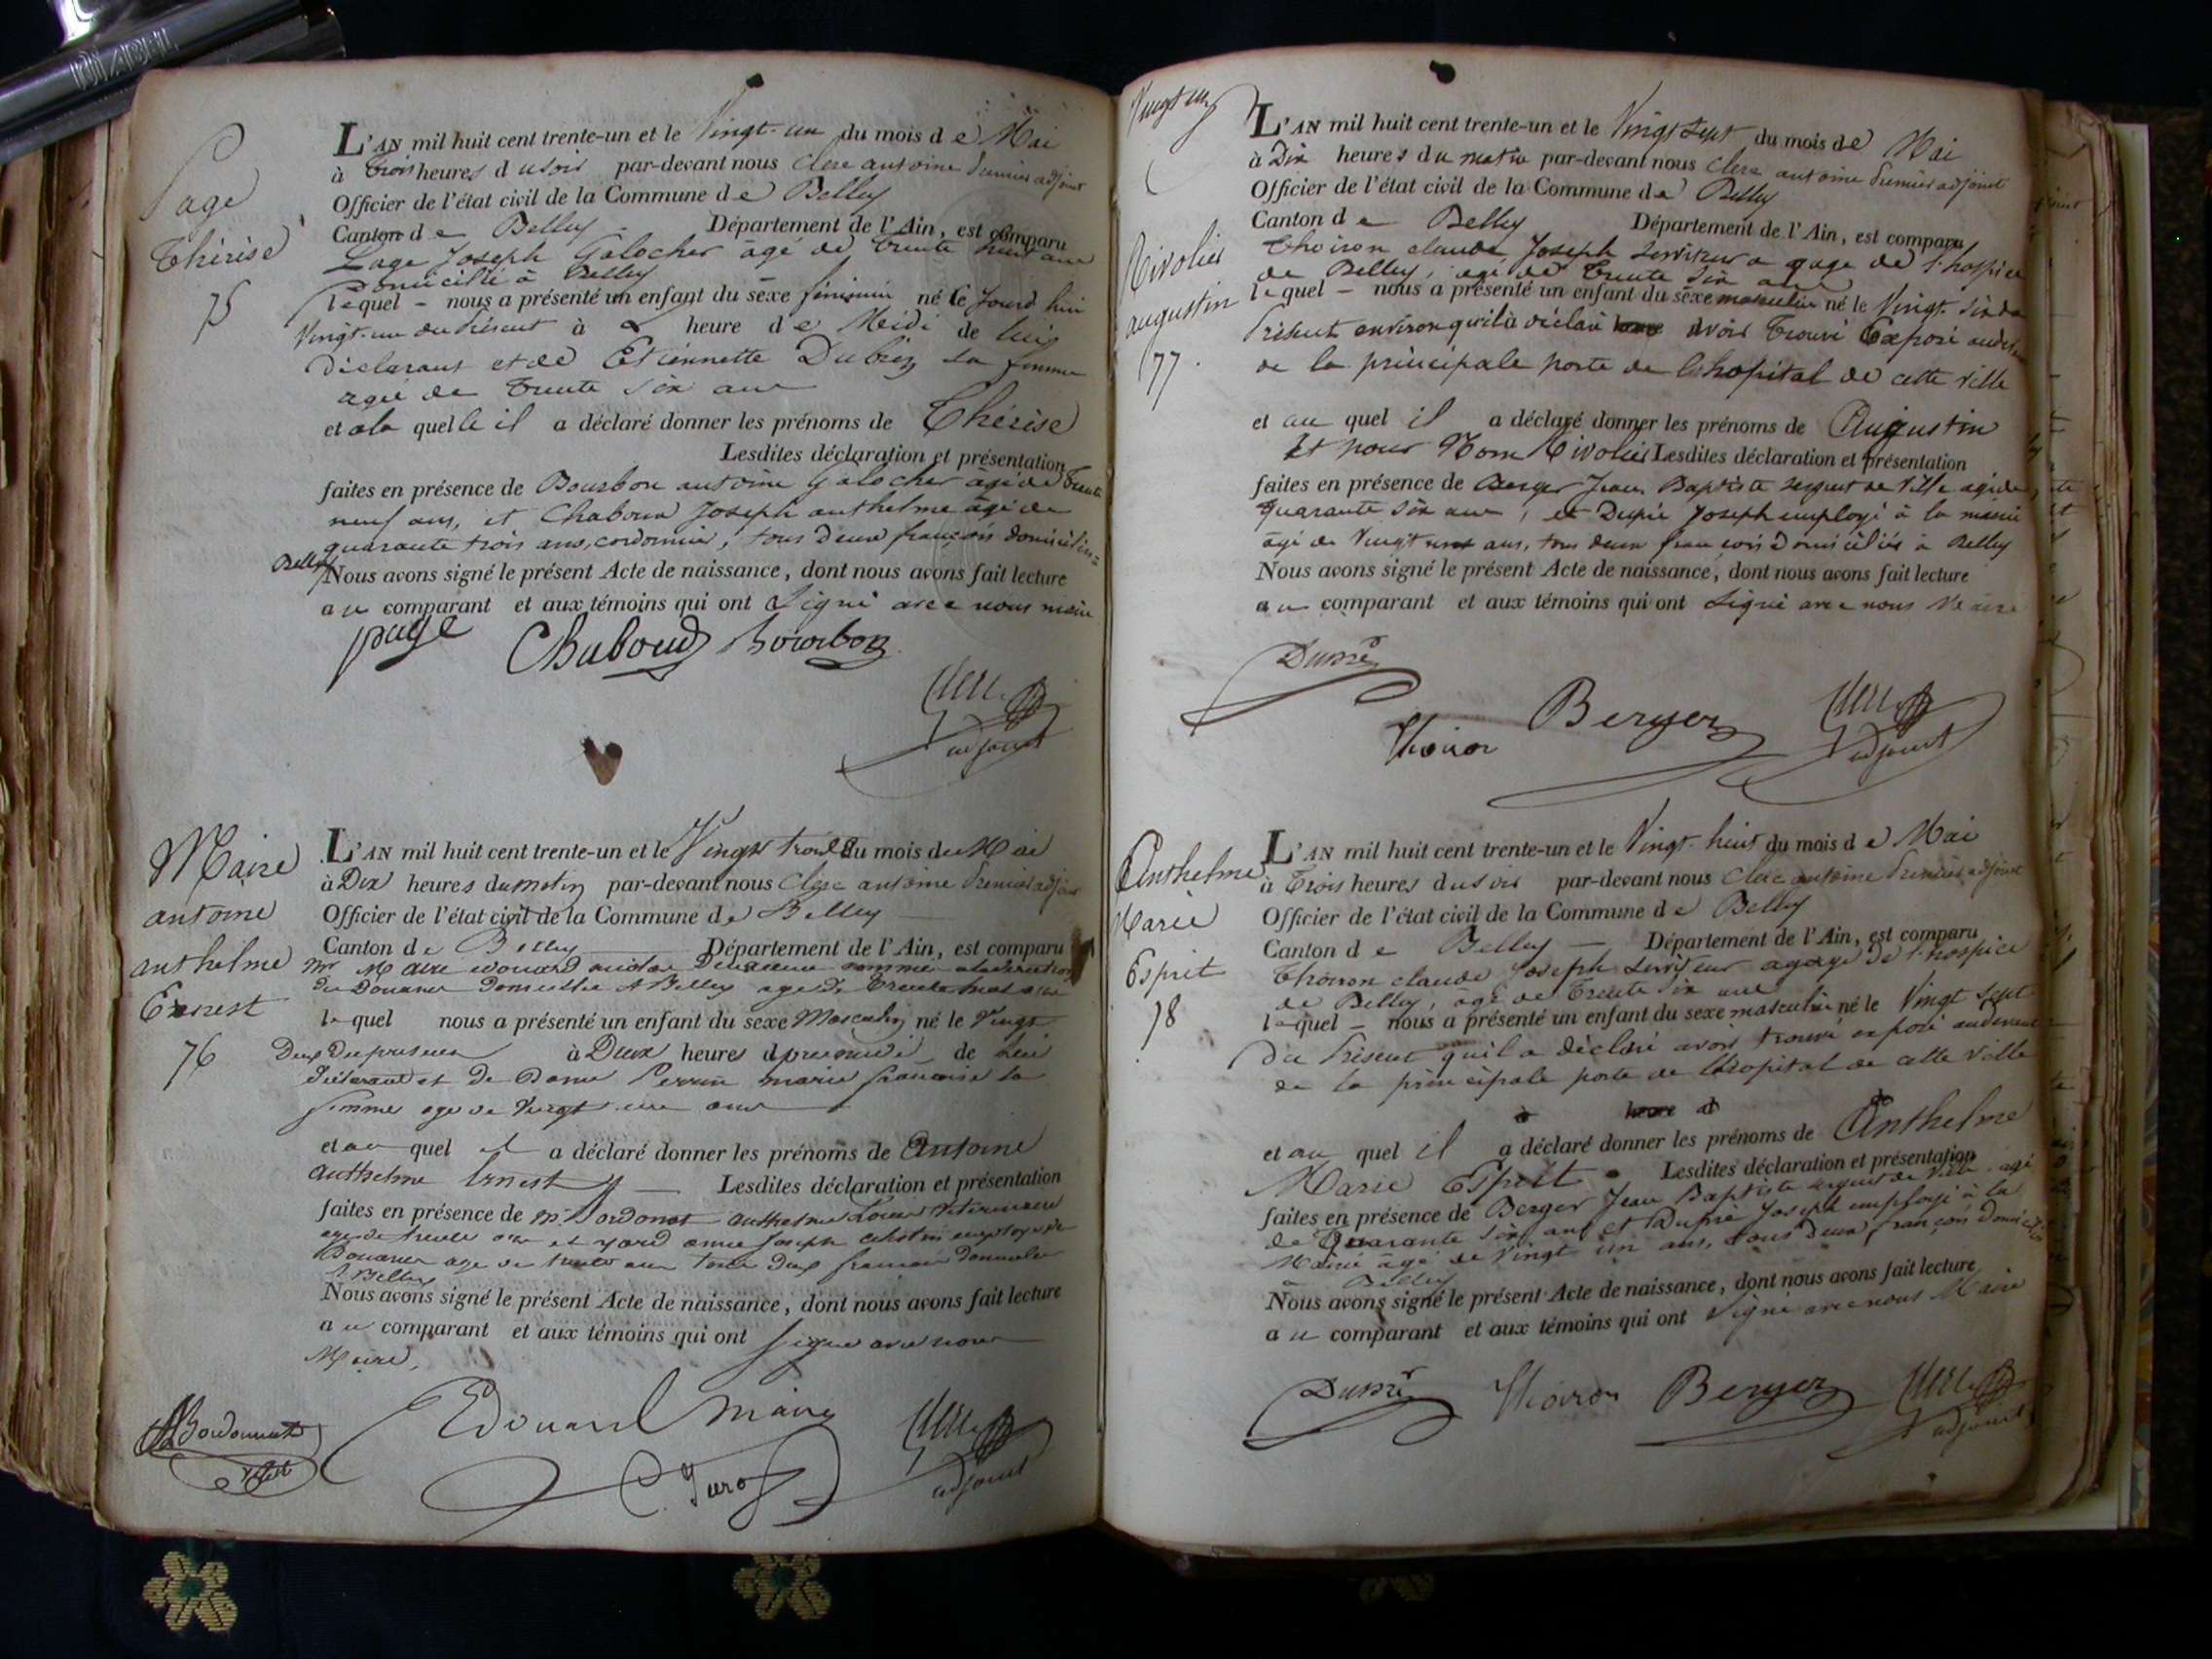 Page
Thérèse
75
L'AN mil huit cent trente-un et le Vingt-un du mois de Mai
à trois heures du soir par-devant nous Clerc antoine Premier adjoint
Officier de l'état civil de la Commune de Belley
Canton de Belley - Département de l'Ain, est comparu
Page Joseph Galocher âgé de trente huit ans
Domicilié à Belley
lequel - nous a présenté un enfant du sexe féminin né le Jourd hui
Vingt-un du Présent à heure de Midi de lui
Déclarant et de Etiennette sa femme
agée de trente six ans
et a la quelle il a déclaré donner les prénoms de Thérèse
Lesdites déclaration et présentation
faites en présence de Bourbon antoine Galocher âgé de trente
neuf ans, et Chaboud Joseph anthelme âgé de
quarante trois ans, cordonnier, tous deux françois domiciliés
Belley
Nous avons signé le présent Acte de naissance, dont nous avons fait lecture
au comparant et aux témoins qui ont Signé avec nous maire
page Chaboud Bourbon
Clerc
adjoint
Maire
antoine
anthelme
Ernest
76
L'AN mil huit cent trente-un et le Vingt trois du mois de Mai
à Dix heures du matin par-devant nous Clerc antoine Premier adjoint
Officier de l'état civil de la Commune de Belley
Canton de Belley Département de l'Ain, est comparu
Mr Maire edouard
des Douanes domicilié A Belley age de trente
lequel nous a présenté un enfant du sexe Masculin né le Vingt
Deux du présent à Deux heures de lui
déclarant et de Dame Perrin marie francoise sa
femme age de Vingt ans
et au quel il a déclaré donner les prénoms de Antoine
anthelme Ernest Lesdites déclaration et présentation
faites en présence de Mr Bordonat anthelme Veterinaire
age de trente ans et joseph employé de
Douanes age de ans tous deux francais domicilié
A Belley
Nous avons signé le présent Acte de naissance, dont nous avons fait lecture
au comparant et aux témoins qui ont signé avec nous
Maire,
Edouard Maire
Clerc
adjoint
Vingt un
Rivolier
augustin
77.
L'AN mil huit cent trente-un et le Vingt Sept du mois de Mai
à Dix heures du matin par-devant nous Clerc antoine Premier adjoint
Officier de l'état civil de la Commune de Belley
Canton de Belley Département de l'Ain, est comparu
Thoiron claude Joseph Serviteur a gage de l'hospice
de Belley, agé de trente six ans
lequel - nous a présenté un enfant du sexe masculin né le Vingt-Six du
Présent environ qu'il à déclaré avoir trouvé Exposé audevant
de la principale porte de l'hopital de cette ville
et au quel il a déclaré donner les prénoms de Augustin
Et pour Nom Rivolier Lesdites déclaration et présentation
faites en présence de Berger Jean Baptiste sergent de Ville agé de
quarante Six ans, et Dupré Joseph employé à la mairie
âgé de Vingt un ans, tous deux francois domiciliés à Belley
Nous avons signé le présent Acte de naissance, dont nous avons fait lecture
au comparant et aux témoins qui ont Signé avec nous Maire
Dupré
Thoiron Berger Clerc
adjoint
Anthelme
Marie
Esprit
78
L'AN mil huit cent trente-un et le Vingt-huit du mois de Mai
à Trois heures du soir par-devant nous Clerc antoine Premier adjoint
Officier de l'état civil de la Commune de Belley
Canton de Belley - Département de l'Ain, est comparu
Thoiron claude Joseph Serviteur a gage de l'hospice
de Belley, âgé de trente Six ans
lequel - nous a présenté un enfant du sexe masculin né le Vingt Sept
Du Présent qu'il a déclaré avoir trouvé exposé audevant
de la principale porte de l'hopital de cette Ville
à heure d
et au quel il a déclaré donner les prénoms de Anthelme
Marie Esprit Lesdites déclaration et présentation
faites en présence de Berger Jean Baptiste sergent de Ville agé
de Quarante Six ans et Dupré Joseph employé à la
Mairie âgé de Vingt un ans, tous deux françois domiciliés
à Belley
Nous avons signé le présent Acte de naissance, dont nous avons fait lecture
au comparant et aux témoins qui ont Signé avec nous Maire
Dupré Thoiron Berger Clerc
adjoint